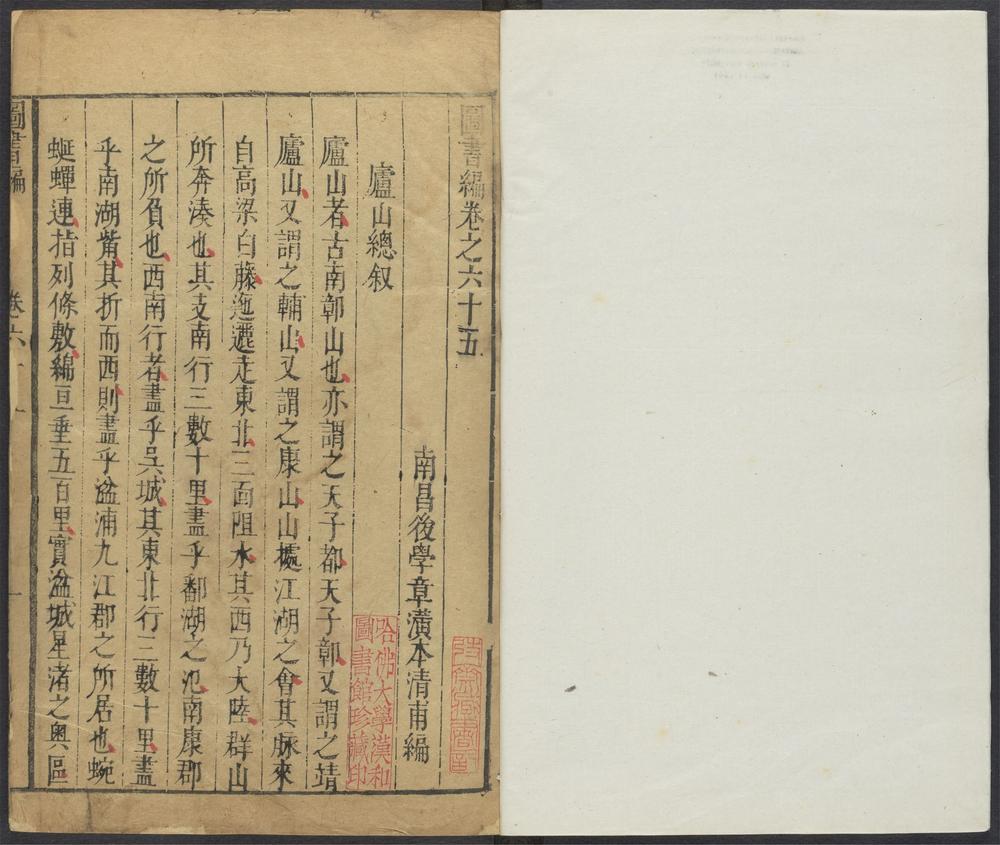 圖書編卷之六十五
南昌後學章潢本清甫編
廬山總叙
廬山者古南鄣山也亦謂之天子都天子鄣又謂之靖
廬山又謂之輔山又謂之康山山據江湖之會其脉來
自高梁白藤迤邐走東北三面阻水其西乃大陸群山
所奔湊也其支南行三數十里盡乎鄱湖之汜南康郡
之所負也西南行者盡乎吳城其東北行三數十里盡
乎南湖觜其折而西則盡乎湓浦九江郡之所居也蜿
蜒蟬連指列條敷綿亘垂五百里實湓城星渚之奧區
圖書編
卷六十
哈佛大學漢和
圖書館珍藏印